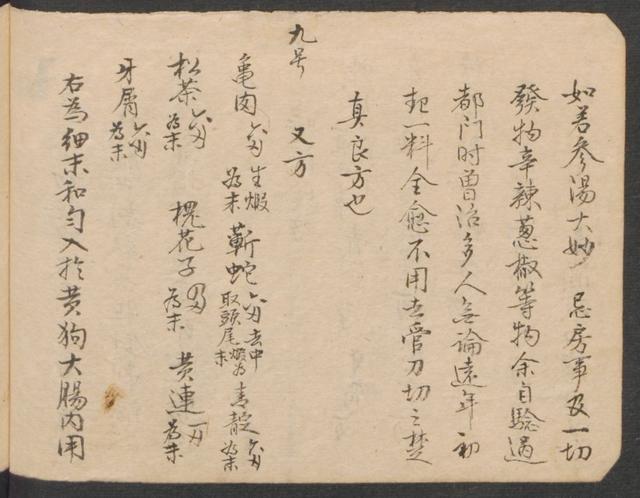 如善參湯大妙 忌房事及一切
發物辛辣蔥椒等物余自驗過
都门时曽治多人無論遠年初
起一料全愈不用去管刀切之楚
真良方也
九号 又方
亀肉 六匁 生煅為末 蘄蛇 六匁去中取頭尾煅為末 青靛 六匁為末
松茶 六匁為末 槐花子 四匁為末 黄連 一匁為末
牙屑 六匁為末
右為细末和匀入於黄狗大腸内用